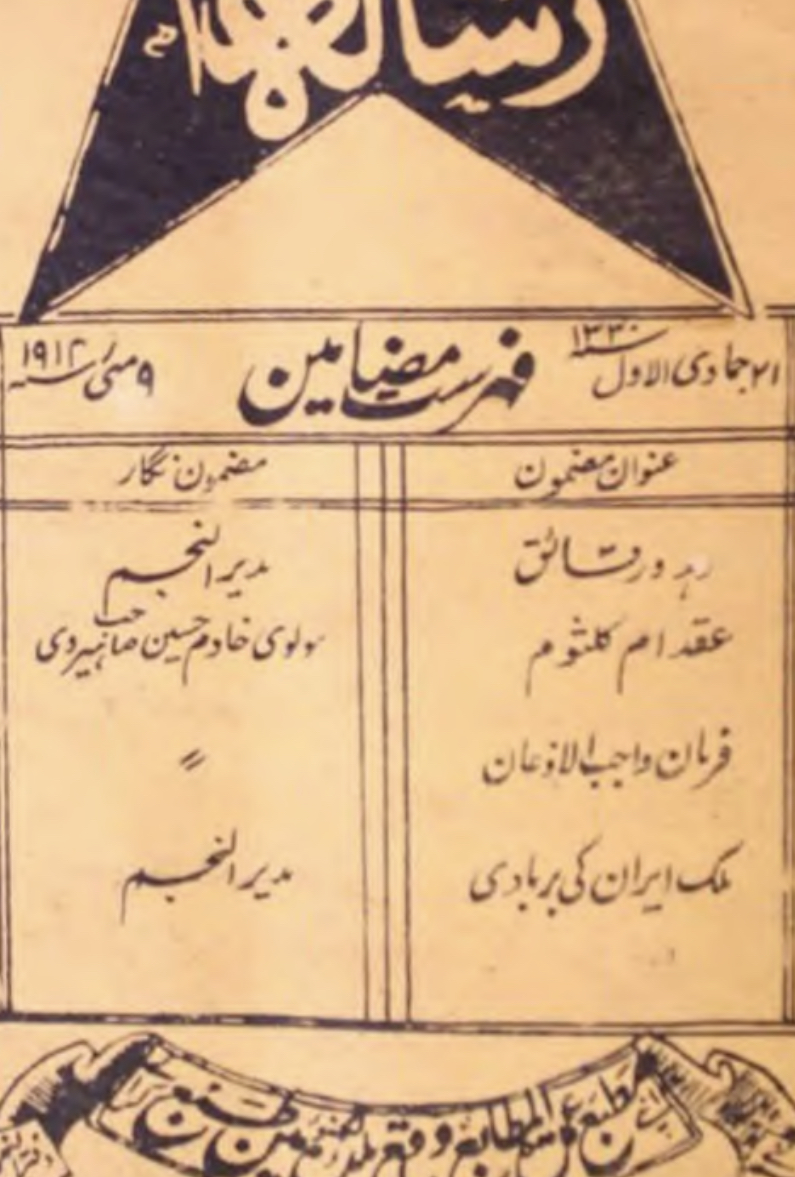 رسالہ ہذا
۲۱ جمادی الاول سنہ ۱۳۳۰
فہرست مضامین
۹ مئی سنہ ۱۹۱۲
عنوان مضمون
مضمون نگار
ورقائق
مدیر النجم
عقد ام کلثوم
مولوی خادم حسین صاحب
فرمان واجب الاذعان
〃
ملک ایران کی بربادی
مدیر النجم
مطبع عمدۃ المطابع واقع لکھنؤ میں طبع